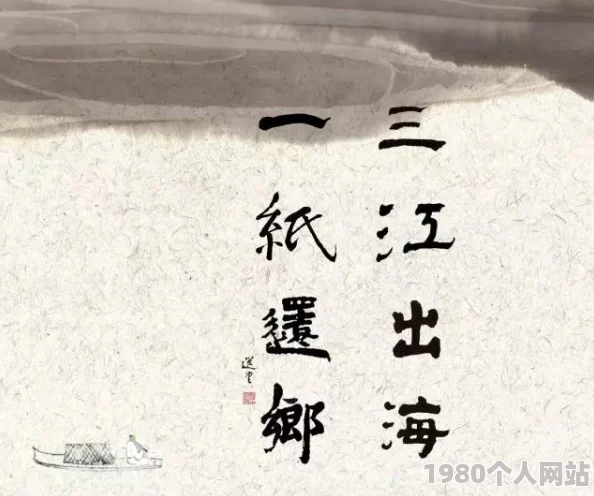 三江出海
一紙還鄉
選堂
1980个人网站